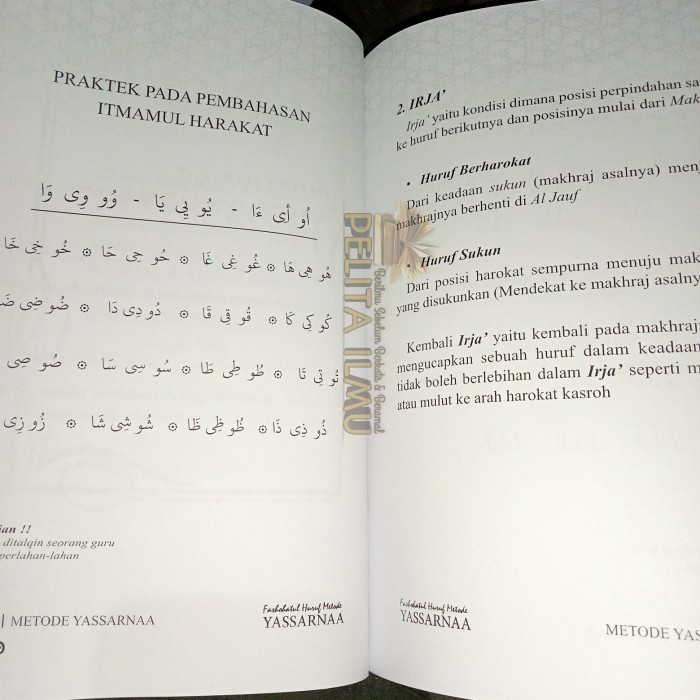 PRAKTEK PADA PEMBAHASAN
ITMAMUL HARAKAT
أُو أِى ءَا - يُو يِي يَا - وُو وِى وَا
هُو هِي هَا ۞ غُو غِي غَا ۞ حُو حِي حَا ۞ خُو خِي خَا
كُو كِي كَا ۞ قُو قِي قَا ۞ دُو دِي دَا ۞ ضُو ضِي
تُو تِي تَا ۞ طُو طِي طَا ۞ سُو سِي سَا ۞ صُو صِي
ذُو ذِي ذَا ۞ ظُو ظِي ظَا ۞ شُو شِي شَا ۞ زُو زِي
!!
ditalqin seorang guru
perlahan-lahan
| METODE YASSARNAA
Fashohatul Huruf Metode
YASSARNAA
2. IRJA'
Irja' yaitu kondisi dimana posisi perpindahan
ke huruf berikutnya dan posisinya mulai dari
• Huruf Berharokat
Dari keadaan sukun (makhraj asalnya)
makhrajnya berhenti di Al Jauf
• Huruf Sukun
Dari posisi harokat sempurna menuju
yang disukunkan (Mendekat ke makhraj
Kembali Irja' yaitu kembali pada
mengucapkan sebuah huruf dalam
tidak boleh berlebihan dalam Irja' seperti
atau mulut ke arah harokat kasroh
Fashohatul Huruf Metode
YASSARNAA
METODE
PELITA ILMU
Berilmu Sebelum Berkata & Beramal